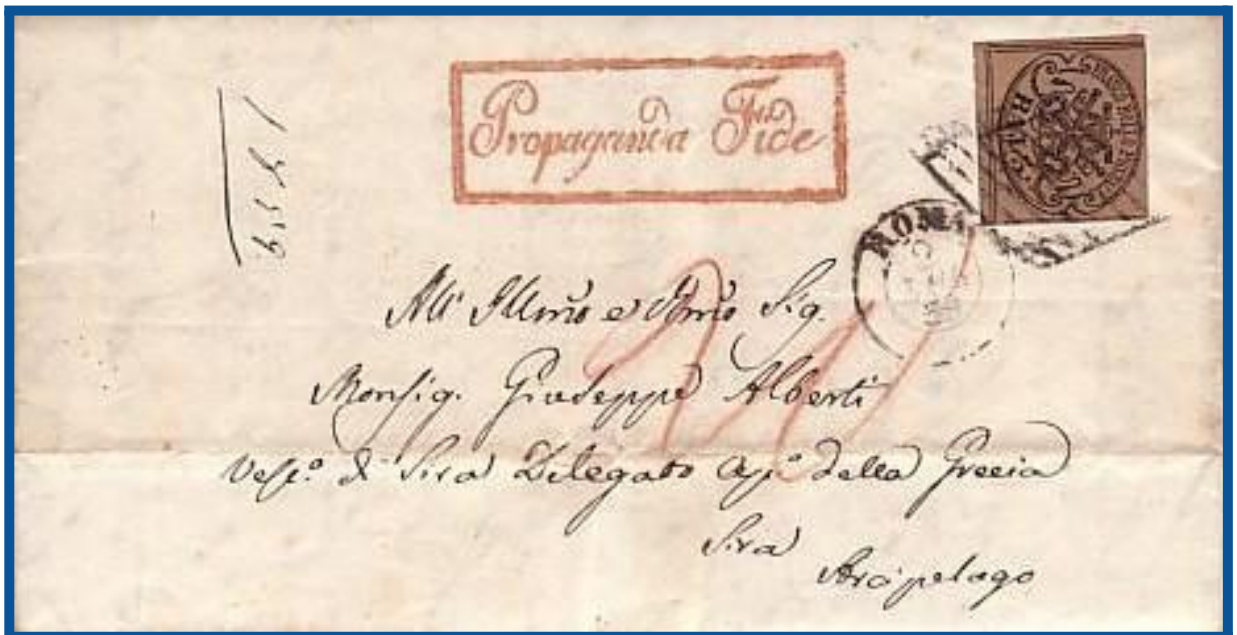 Propaganda Fide
FRANCO BOLLO POSTALE
BAJ
ROMA
All' Illmo e Rmo Sig.
Monsig. Giuseppe Alberti
Vesc.o di Sira Delegato Ap.o della Grecia
Sira
Arcipelago